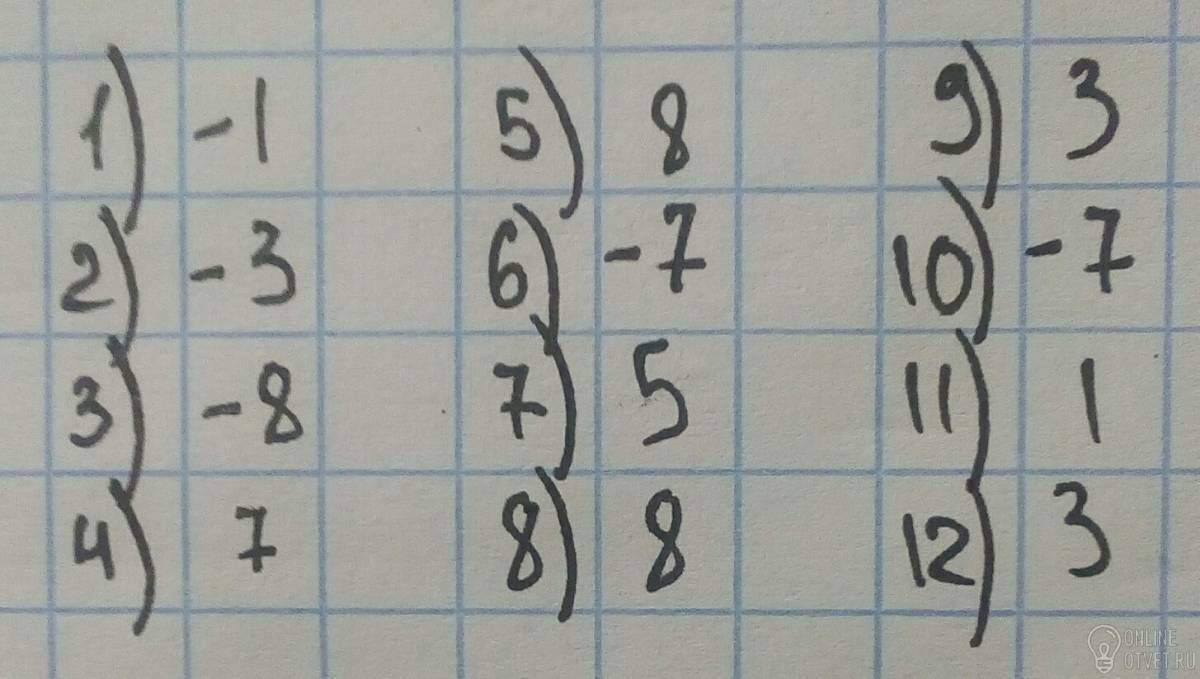 1) -1
2) -3
3) -8
4) 7
5) 8
6) -7
7) 5
8) 8
9) 3
10) -7
11) 1
12) 3
ONLINE
OTVET.RU